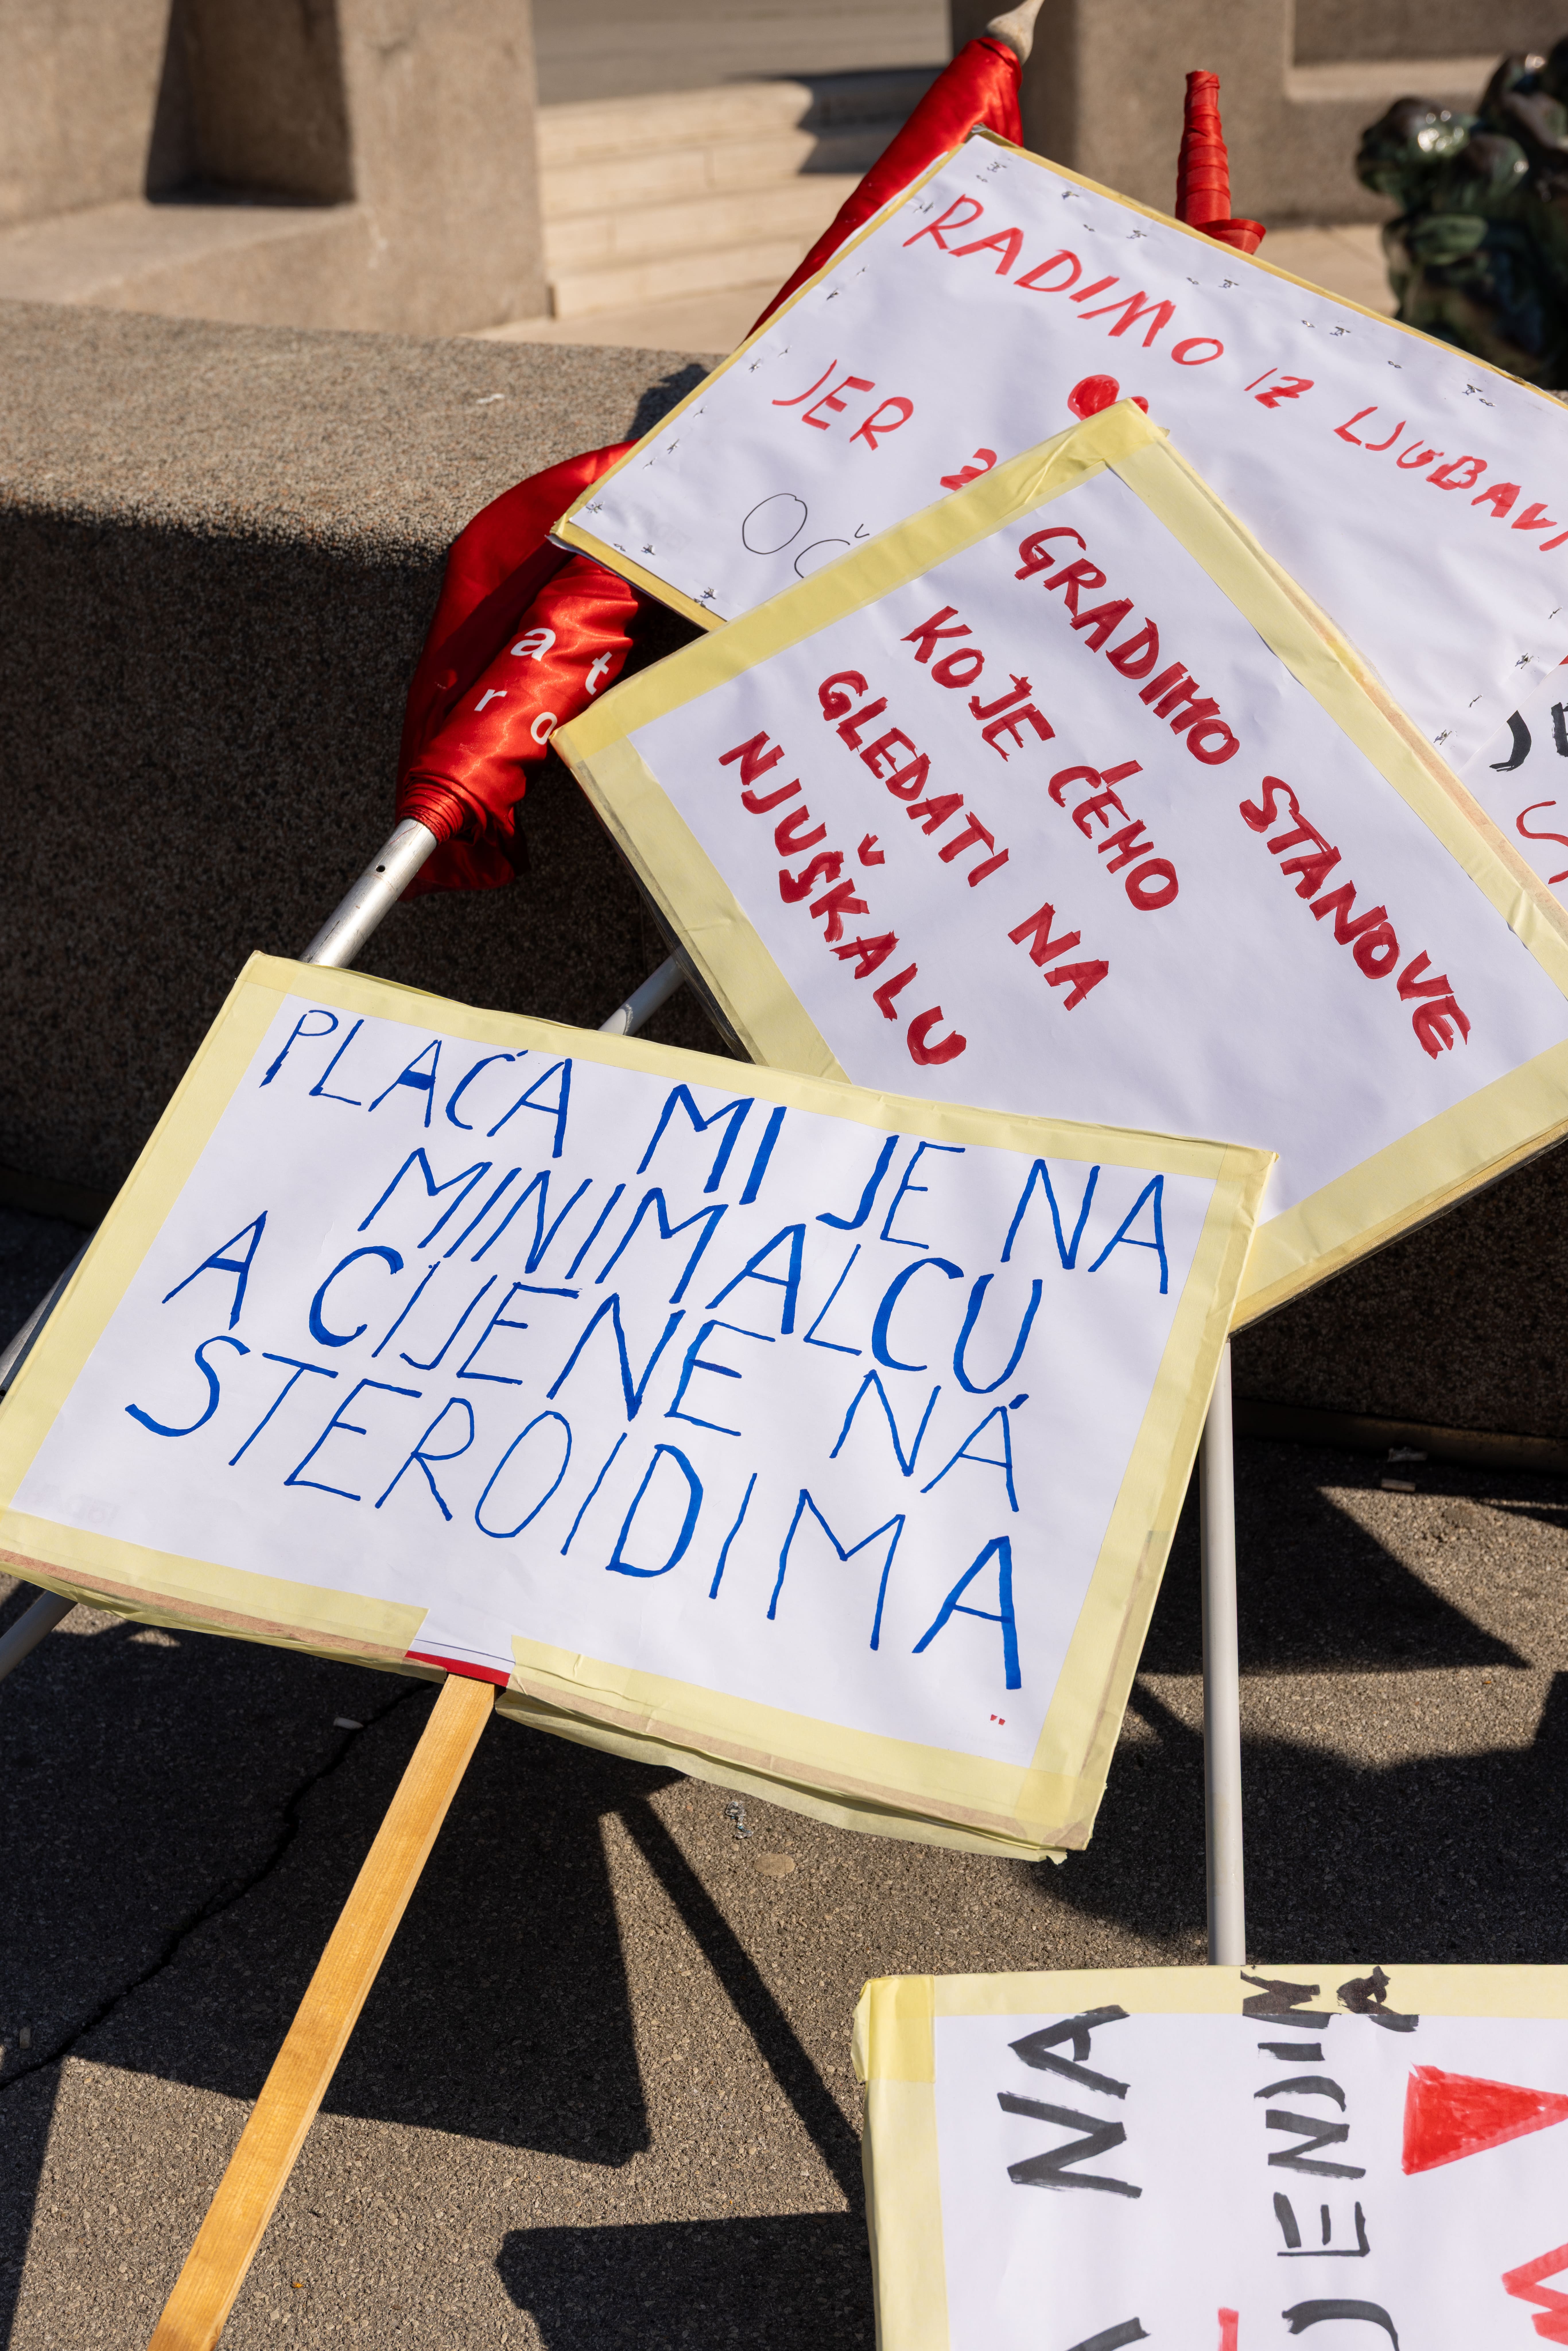 RADIMO IZ LJUBAVI
JER
GRADIMO STANOVE
KOJE ĆEMO
GLEDATI NA
NJUŠKALU
PLAĆA MI JE NA
MINIMALCU
A CIJENE NA
STEROIDIMA
NA